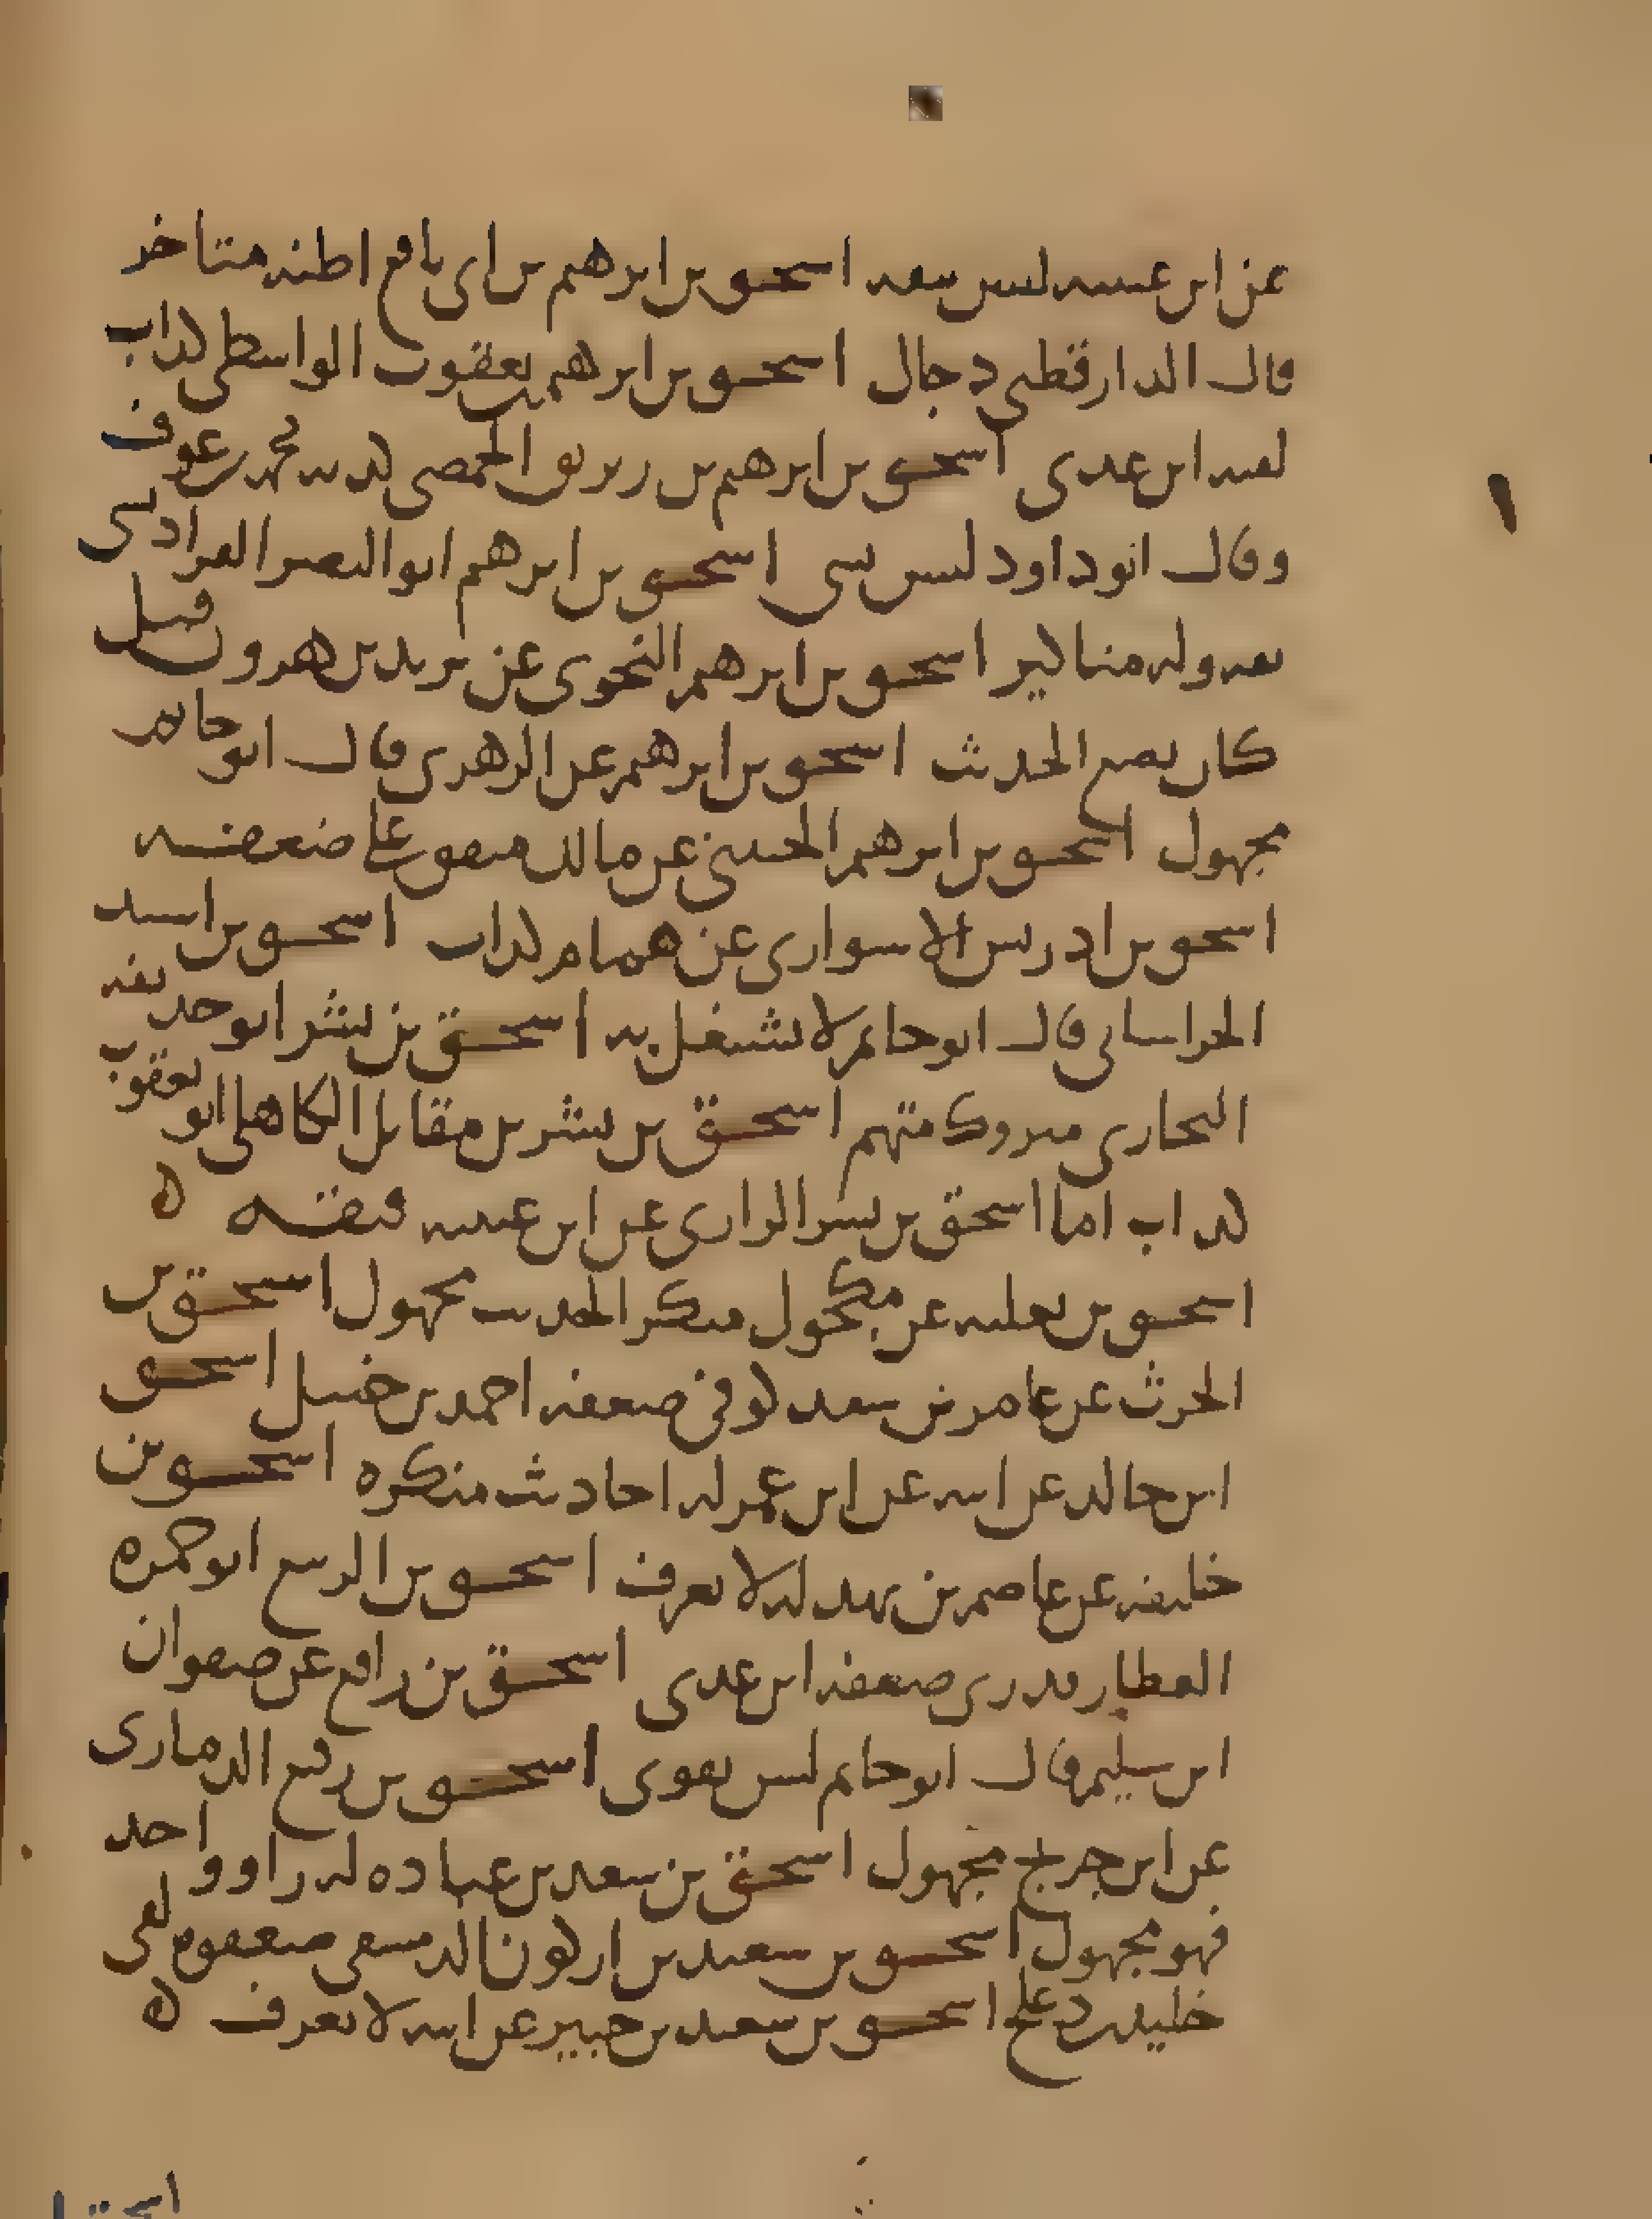 عن ابن عيينه ليس بثقه اسحق بن ابرهيم بن ابي نافع اظنه متاخر
قال الدارقطني دجال اسحق بن ابرهيم بن يعقوب الواسطي كذاب
لقيه ابن عدي اسحق بن ابرهيم بن زبريق الحمصي كذبه محمد بن عوف
وقال ابو داود ليس بشي اسحق بن ابرهيم ابو النضر الفراديسي
ثقه وله مناكير اسحق بن ابرهيم النحوي عن يزيد بن هرون قيل
كان يضع الحديث اسحق بن ابرهيم عن الزهري قال ابو حاتم
مجهول اسحق بن ابرهيم الحنيني عن مالك متفق على ضعفه
اسحق بن ادريس الاسواري عن همام كذاب اسحق بن اسيد
الخراساني قال ابو حاتم لا يشتغل به اسحق بن بشر ابو حذيفه
البخاري متروك متهم اسحق بن بشر بن مقاتل الكاهلي ابو يعقوب
كذاب اما اسحق بن بشر الرازي عن ابن عيينه فثقه ه
اسحق بن ثعلبه عن مكحول منكر الحديث مجهول اسحق بن
الحرث عن عامر بن سعد كوفي ضعفه احمد بن حنبل اسحق
ابن خالد عن ابيه عن ابن عمر له احاديث منكره اسحق بن
خليفه عن عاصم بن بهدله لا يعرف اسحق بن الربيع ابو حمزه
العطار قدري ضعفه ابن عدي اسحق بن رافع عن صفوان
ابن سليم قال ابو حاتم ليس بقوي اسحق بن ربيع الذماري
عن ابن جريج مجهول اسحق بن سعد بن عباده له راو واحد
فهو مجهول اسحق بن سعيد بن اركون الدمشقي ضعفوه لقي
خليد بن دعلج اسحق بن سعيد بن جبير عن ابيه لا يعرف ه